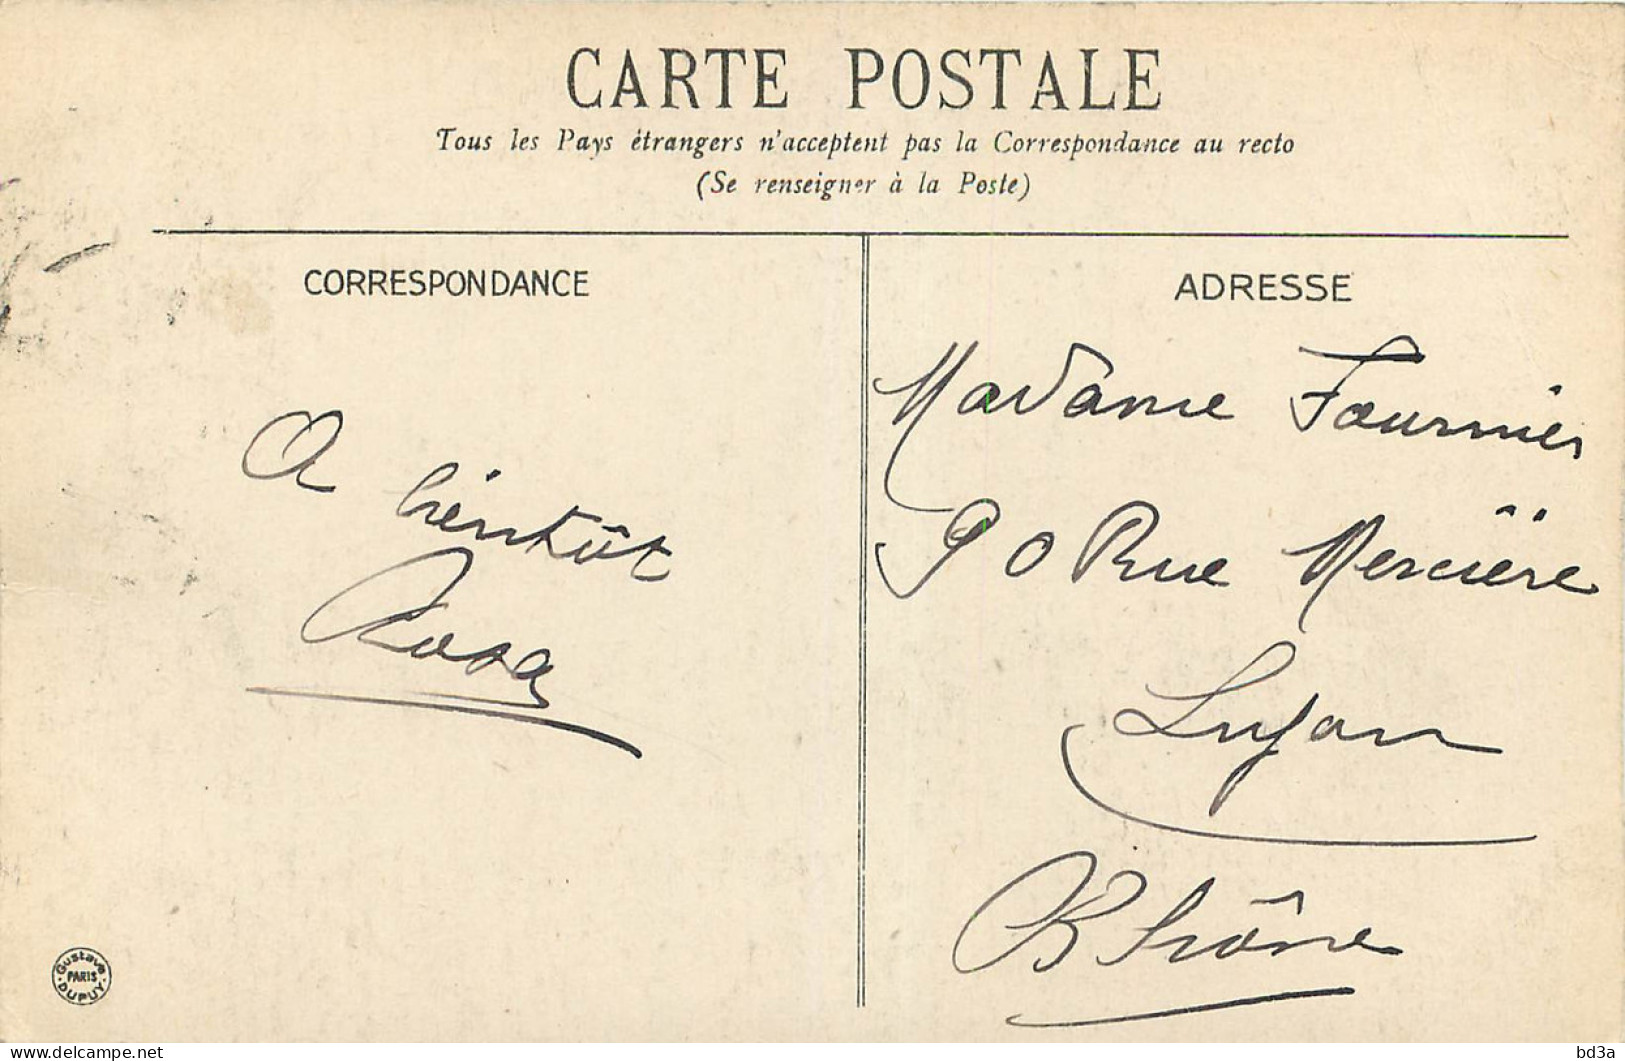 CARTE POSTALE
Tous les Pays étrangers n'acceptent pas la Correspondance au recto
(Se renseigner à la Poste)
CORRESPONDANCE
A bientôt
Rosa
ADRESSE
Madame Fournier
90 Rue Mercière
Lyon
Rhône
Gustave
PARIS
DUPUY
delcampe.net
bd3a